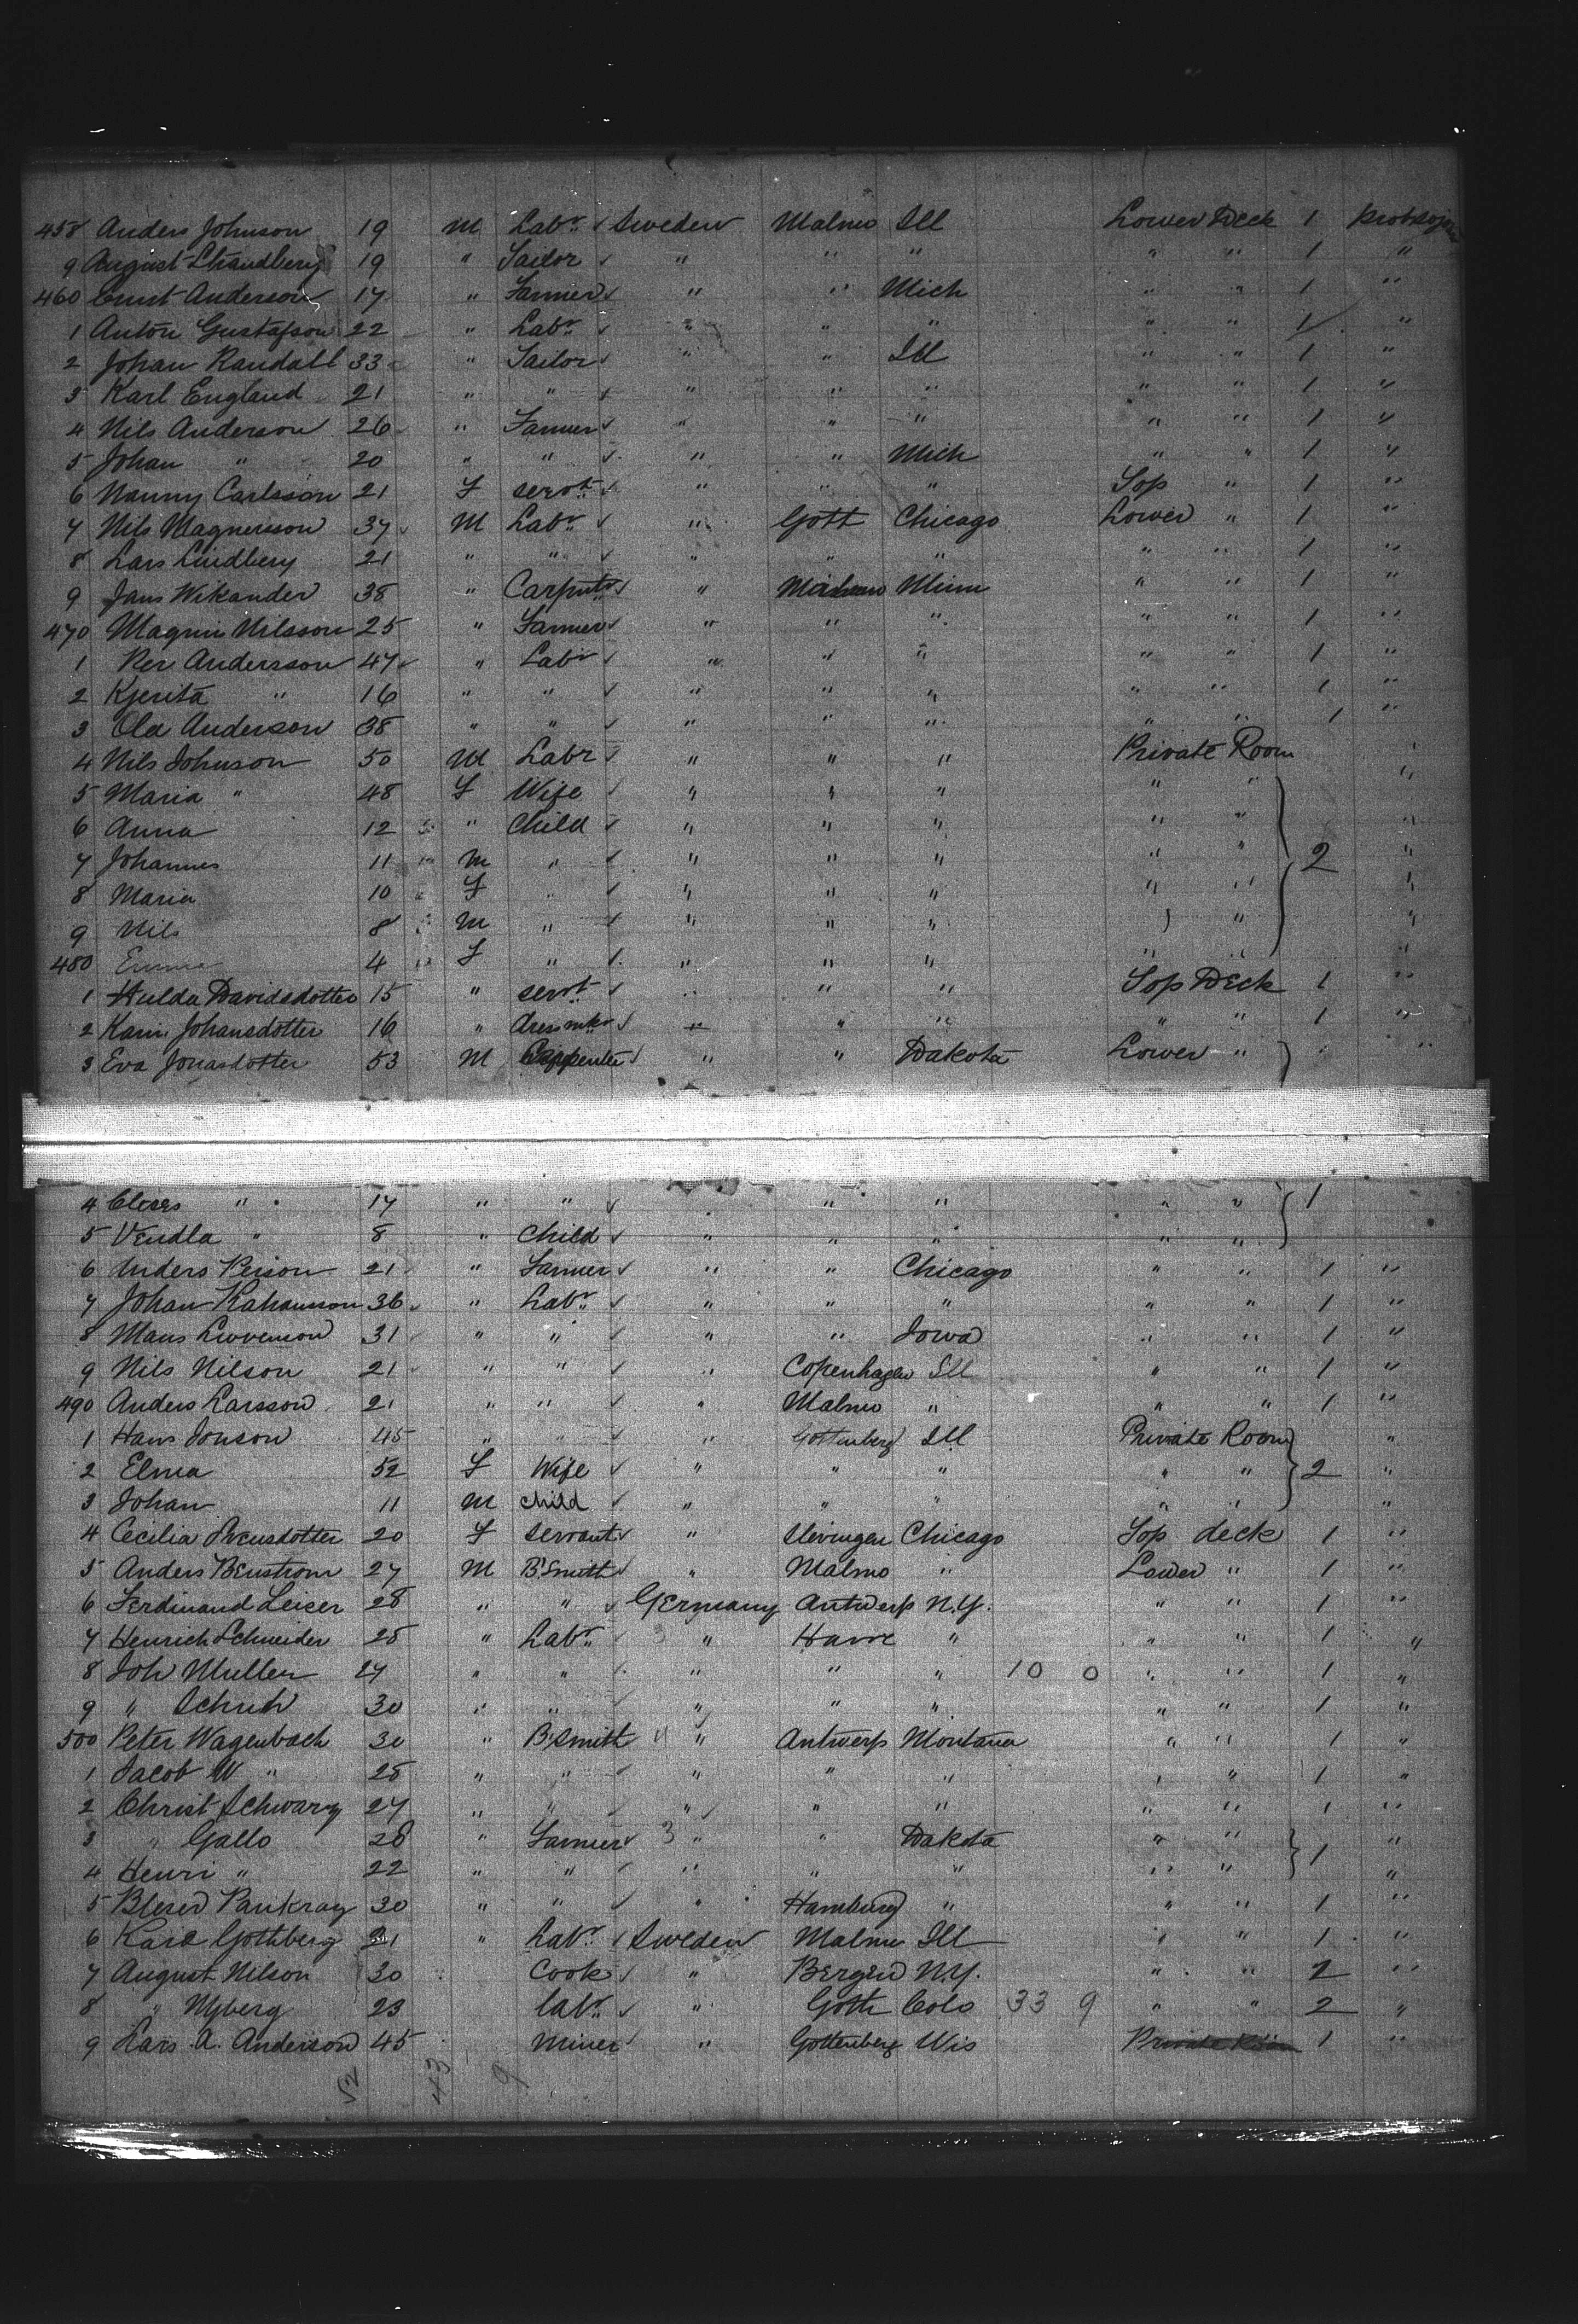 458 Anders Johnson 19 M Labr Sweden Malmo Ill Lower Deck 1
9 August 19 " Tailor " " " " " 1 "
460 Ernst Anderson 17 " Farmer " " Mich " " 1 "
1 Anton Gustafson 22 " Labr " " " " " 1 "
2 Johan Randall 33 " Tailor " " Ill " " 1 "
3 Karl England 21 " " " " " " " 1 "
4 Nils Anderson 26 " Farmer " " " " " 1 "
5 Johan " 20 " " " " Mich " " 1 "
6 Nanny Carlsson 21 F servt " " " Top " 1 "
7 Nils Magnersson 37 M Labr " Gott Chicago Lower " 1 "
8 Lars Lindberg 21 " " " " " " " 1 "
9 Jans Wikander 38 " Carpntr " Minn " " 1 "
470 Magnus Nilsson 25 " Farmer " " " " " 1 "
1 Per Andersson 47 " Labr " " " " " 1 "
2 Kjerita " 16 " " " " " " " 1 "
3 Ola Anderson 38 " " " " " " " 1 "
4 Nils Johnson 50 M Labr " " " Private Room "
5 Maria " 48 F Wife " " " " " "
6 Anna 12 " Child " " " " " "
7 Johannes 11 M " " " " " " 2 "
8 Maria 10 F " " " " " " "
9 Nils 8 M " " " " " " "
480 Emma 4 F " " " " " " "
1 Hulda Davidsdotter 15 " servt " " " Top Deck 1 "
2 Karin Johansdotter 16 " dressmkr " " " " " 1 "
3 Eva Jonasdotter 53 M Carpenter " " Dakota Lower " "
4 " 17 " " " " " " 1
5 Vendla " 8 " Child " " " " "
6 Anders Person 21 " Farmer " " Chicago " " 1 "
7 Johan 36 " Labr " " " " " 1 "
8 Mans 31 " " " " Iowa " " 1 "
9 Nils Nilson 21 " " " Copenhagen Ill " " 1 "
490 Anders Larsson 21 " " " Malmo " " " 1 "
1 Hans Jonson 45 " " " Gottenberg Ill Private Room "
2 Elma 52 F Wife " " " " " 2 "
3 Johan 11 M child " " " " " "
4 Cecilia Svensdotter 20 F servant " Chicago Top deck 1 "
5 Anders Benstrom 27 M B.Smith " Malmo " Lower " 1 "
6 Ferdinand Leiser 28 " " Germany Antwerp N.Y. " " 1 "
7 Henrich Schneider 28 " Labr " Havre " " " 1 "
8 Joh Muller 27 " " " " " 10 0 " " 1 "
9 " Schuh 30 " " " " " " " 1 "
500 Peter Wagenbach 30 " B.Smith " Antwerp Montana " " 1 "
1 Jacob W " 28 " " " " " " " 1 "
2 Christ Schwarz 27 " " " " " " " 1 "
3 " Gallo 28 " Farmer 3 " " Dakota " " "
4 Henri " 22 " " " " " " " 1 "
5 30 " " " Hamburg " " " 1 "
6 Gothberg 21 " Labr Sweden Malmo Ill " " 1 "
7 August Nilson 30 Cook " Bergen N.Y. " " 2 "
8 " Nyberg 23 labr " Goth Colo 33 9 " " 2 "
9 Lars A. Anderson 45 Miner " Gottenberg Wis Private Room 1 "
52 43 9